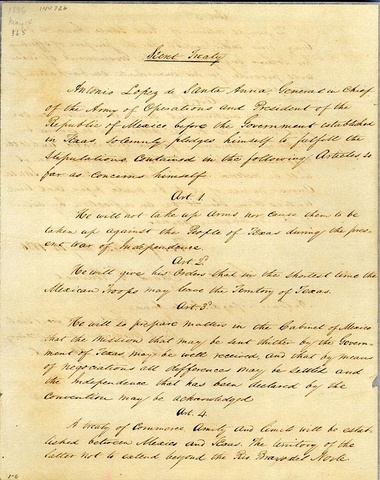 1836
May 14
365
Secret Treaty
Antonio Lopez de Santa Anna, General in Chief
of the Army of Operations and President of the
Republic of Mexico before the Government established
in Texas, solemnly pledges himself to fulfill the
Stipulations contained in the following Articles so
far as concerns himself
Art. 1
He will not take up arms nor cause them to be
taken up against the People of Texas during the pres-
ent war of Independence.
Art 2.
He will give his Orders that in the shortest time the
Mexican Troops may leave the Territory of Texas.
Art. 3
He will so prepare matters in the Cabinet of Mexico
that the Mission that may be sent thither by the Govern-
ment of Texas may be well received, and that by means
of negociations all differences may be settled and
the Independence that has been declared by the
Convention may be acknowledged
Art. 4.
A treaty of Commerce, Amity and limits will be estab-
lished between Mexico and Texas. The territory of the
latter not to extend beyond the Rio Bravo del Norte